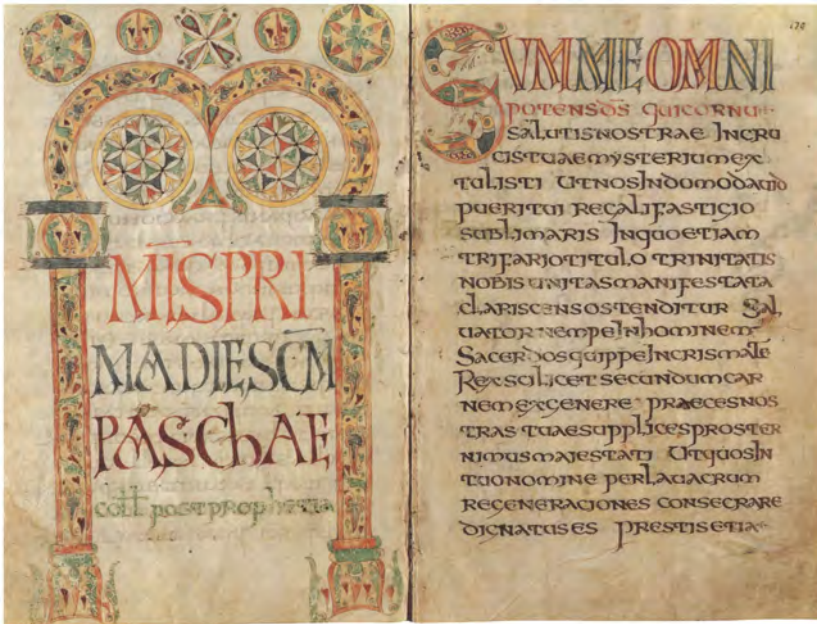 MIS PRI
MA DIE SCM
PASCHAE
coll post prophetia
170
SUMME OMNI
POTENS DS QUI CORNU
SALUTIS NOSTRAE IN CRU
CIS TUAE MYSTERIUM EX
TULISTI UT NOS IN DOMO DAVID
PUERI TUI REGALI FASTIGIO
SUBLIMARIS IN QUO ETIAM
TRIFARIO TITULO TRINITATIS
NOBIS UNITAS MANIFESTATA
CLARISCENS OSTENDITUR SAL
UATOR NEMPE IN HOMINEM
SACERDOS QUIPPE IN CRISMATE
REX SCILICET SECUNDUM CAR
NEM EX GENERE PRAECES NOS
TRAS TUAE SUPPLICES PROSTER
NIMUS MAIESTATI UT QUOS IN
TUO NOMINE PER LAUACRUM
REGENERACIONES CONSECRARE
DIGNATUS ES PRESTIS ETIA